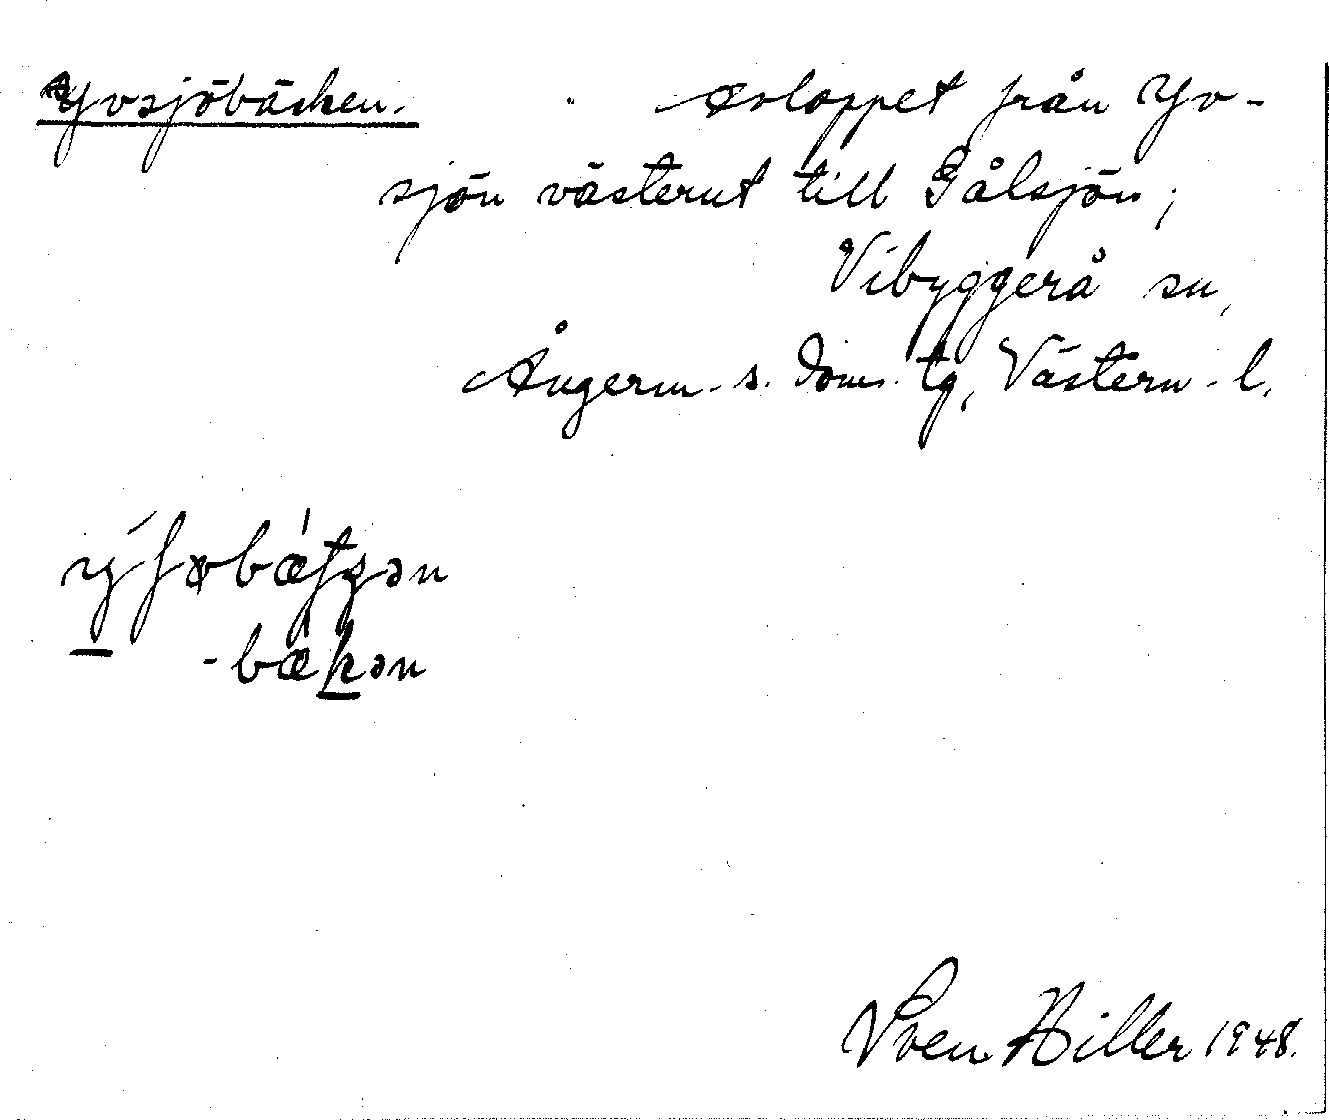 Yvsjöbäcken. Avloppet från Yv-
sjön västerut till Gålsjön;
Vibyggerå sn,
Ångerm. s. doms. tg, Västern. l.
-bækən
Sven Hiller 1948.